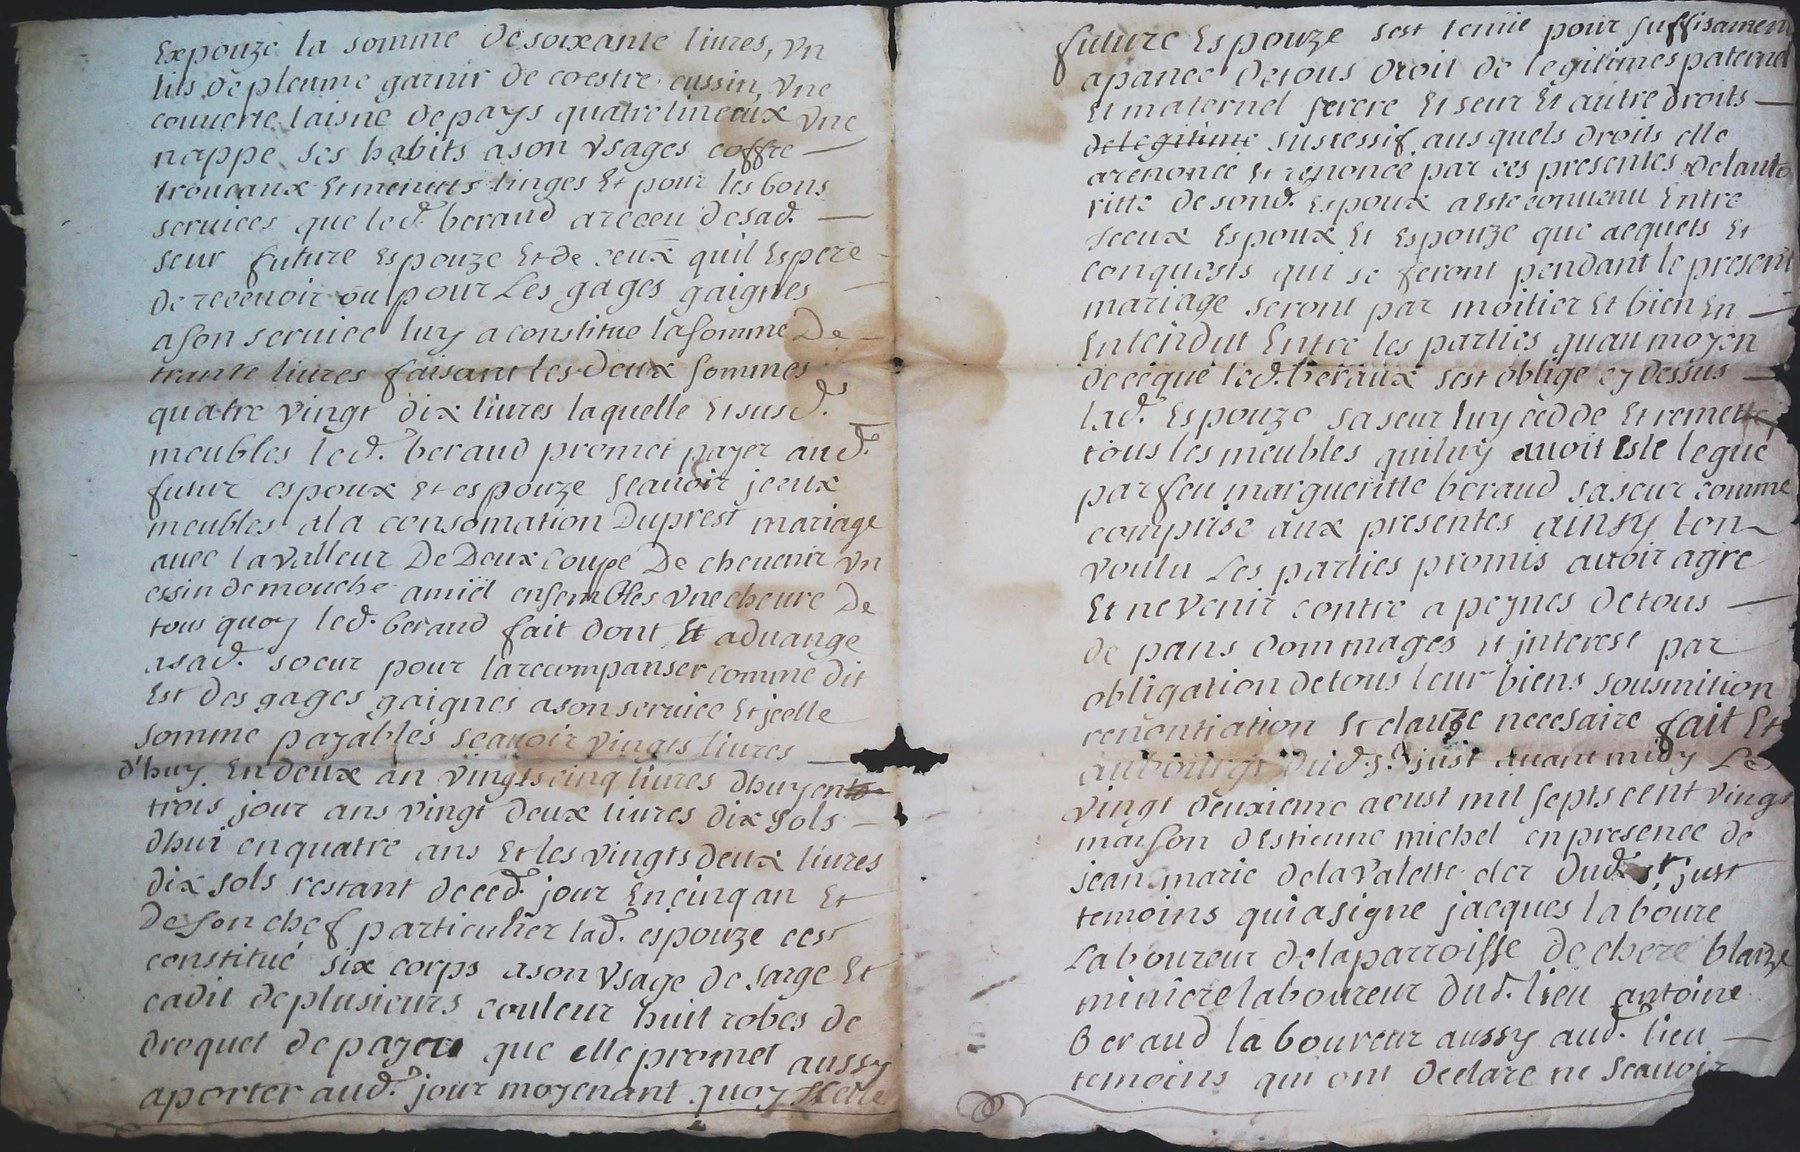 Expouze la somme desoixante liures, vn
lits depleume garnir de coestre cussin, vne
couuerte laisne depays quatre linceux vne
nappe ses habits ason vsages coffre —
troueaux Et menuts linges Et pour les bons
seruices que led. beraud a receu desad. —
seur future Espouze Et de ceux quil Espere
de receuoir ou pour Les gages gaignes —
ason seruice luy a constitue la somme De —
trante liures faisant les deux sommes
quatre vingt dix liures laquelle Et susd.
meubles led. beraud promet payer aud.
futur espoux Et espouze scauoir jceux
meubles ala consomation Duprest mariage
auec la valleur De Deux coupe De cheneuir vn
essin de mouche amiel ensembles vne cheure De
tous quoy led. beraud fait dont Et aduange
asad. soeur pour larecompanser comme dit
Est des gages gaignes ason seruice Et jcelle
somme payables scauoir vingts liures —
d'huy En deux an vingts cinq liures dhuy en
trois jour ans vingt deux liures dix sols —
dhui en quatre ans Et les vingts deux liures
dix sols restant deced. jour En cinq an Et
De son chef particulier lad. espouze cest
constitué six corps ason vsage de sarge Et
cadit de plusieurs couleur huit robes de
droquet de payer que elle promet aussy
aporter aud. jour moyenant quoy
future Espouze sest tenue pour suffisament
apanee detous droit de legitimes paternel
Et maternel frere Et seur Et autre droits —
delegitime sucessif ausquels droits elle
arenonce Et renonce par ces presentes delauto
ritte desond. Espoux a Este conuenu Entre
jceux Espoux Et Espouze que acquets Et
conquests qui se feront pendant le present
mariage seront par moitier Et bien En —
Entendut Entre les parties quau moyen
de ce que led. beraux sest oblige cy dessus —
lad. Espouze saseur luy cedde Et remette
tous les meubles quiluy auoit Este legue
par feu margueritte beraud saseur comme
comprise aux presentes ainsy lon
voulu Les parties promis auoir agre
Et ne venir contre apeynes detous —
de pans dommages Et jnterest par
obligation detous leur biens sousmition
renontiation Et clauze necesaire fait Et
aubourgt dud. St just auant midy Le
vingt deuxieme aeust mil septs cent vingt
maison dEstienne michel en presence de
jean marie delavalette cler dud. St just
temoins qui a signe jacques laboure
Laboureur delaparroisse de chere blaize
miniere laboureur dud. lieu antoine
Beraud laboureur aussy aud. lieu —
temoins qui ont declare ne scauoir